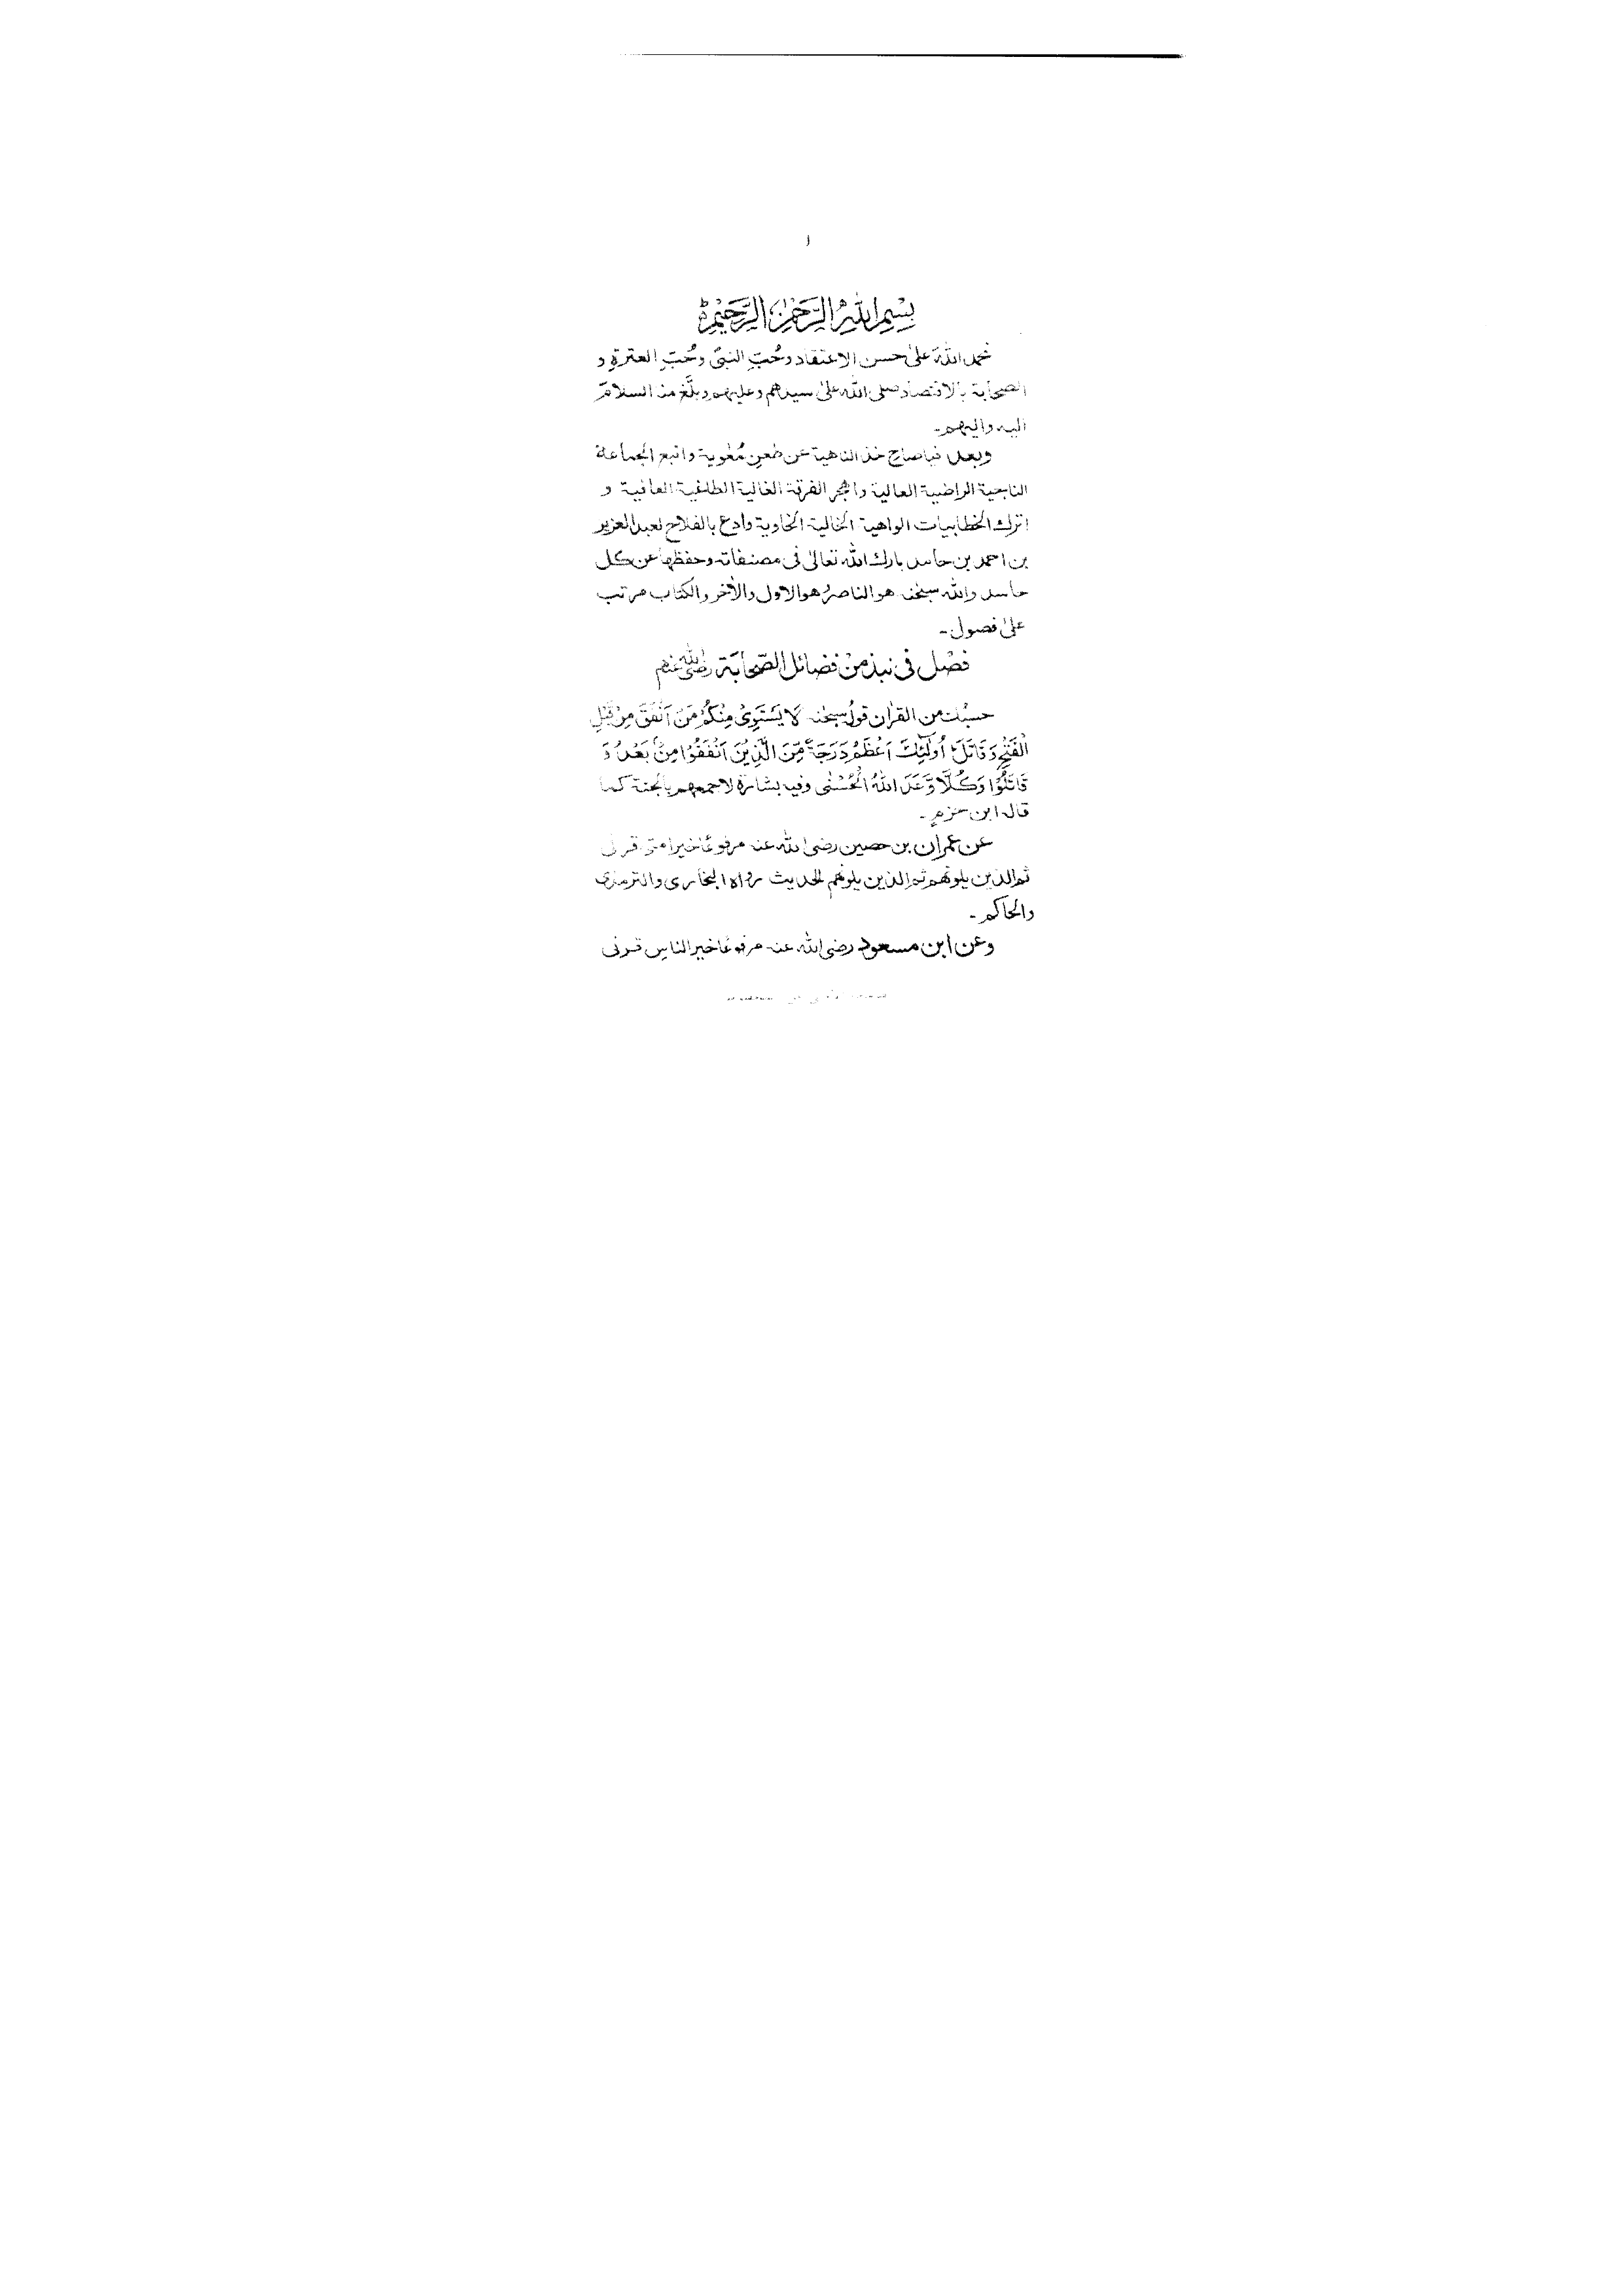 ١
بِسْمِ اللهِ الرَّحْمٰنِ الرَّحِيْمِ
نحمد اللهَ علىٰ حسن الاعتقاد وحُبّ النبیّ وحُبّ العترةِ و
الصحابة بالاقتصاد صلى الله علىٰ سيدهم وعليهم وبلّغ منا السلام
اليه واليهم۔
وبعد فياصاح خذ الناهية عن طعن مُعٰوية واتبع الجماعة
الناجية الراضية العالية واهجر الفرقة الغالية الطاغية العافية و
اترك الخطابيات الواهية الخالية الخاوية وادع بالفلاح لعبد العزيز
بن احمد بن حامد بارك الله تعالىٰ فى مصنفاته وحفظها عن كل
حاسد والله سبحٰنه هو الناصر هو الاول والاٰخر والكتاب مرتب
علىٰ فصول۔
فصْل فى نبذ منْ فضائل الصّحابَة رضی اللہ عنہم
حسبُك من القراٰن قولُه سبحٰنه لَا يَسْتَوِىْ مِنْكُمْ مَنْ اَنْفَقَ مِنْ قَبْلِ
الْفَتْحِ وَقَاتَلَ اُولٰٓئِكَ اَعْظَمُ دَرَجَةً مِّنَ الَّذِيْنَ اَنْفَقُوْا مِنْۢ بَعْدُ وَ
قَاتَلُوْا وَكُلًّا وَّعَدَ اللهُ الْحُسْنٰى وفيه بشارة لاجمعهم بالجنة كما
قاله ابن حزم۔
عن عمران بن حصين رضى الله عنه مرفوعًا خير امتى قرنى
ثم الذين يلونهم ثم الذين يلونهم الحديث رواه البخارى والترمذى
والحاكم۔
وعن ابن مسعود رضى الله عنه مرفوعًا خير الناس قرنى